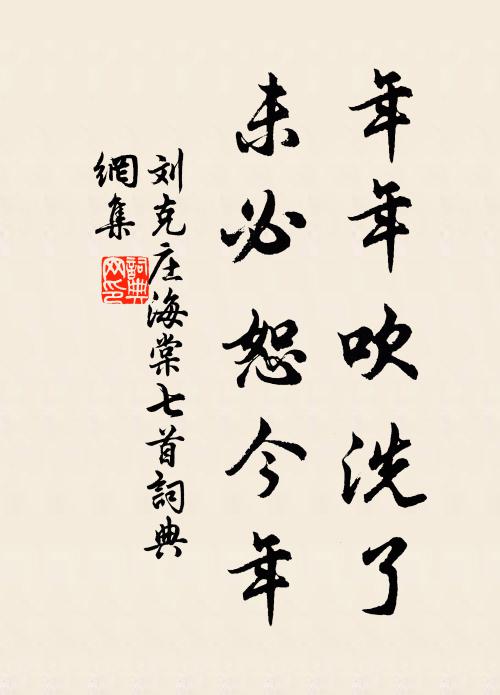 年年吹洗了
未必恕今年
刘克庄海棠七首詞典
網集
詞典网印